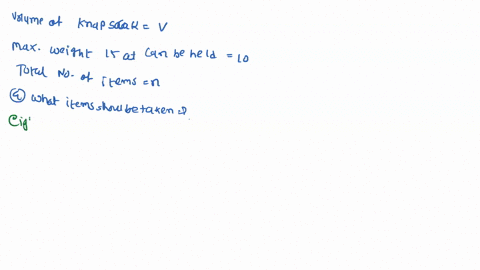 Volume of knapsack = V
Max. weight it at can be held = 10
Total No. of items = n
Q what items should be taken?